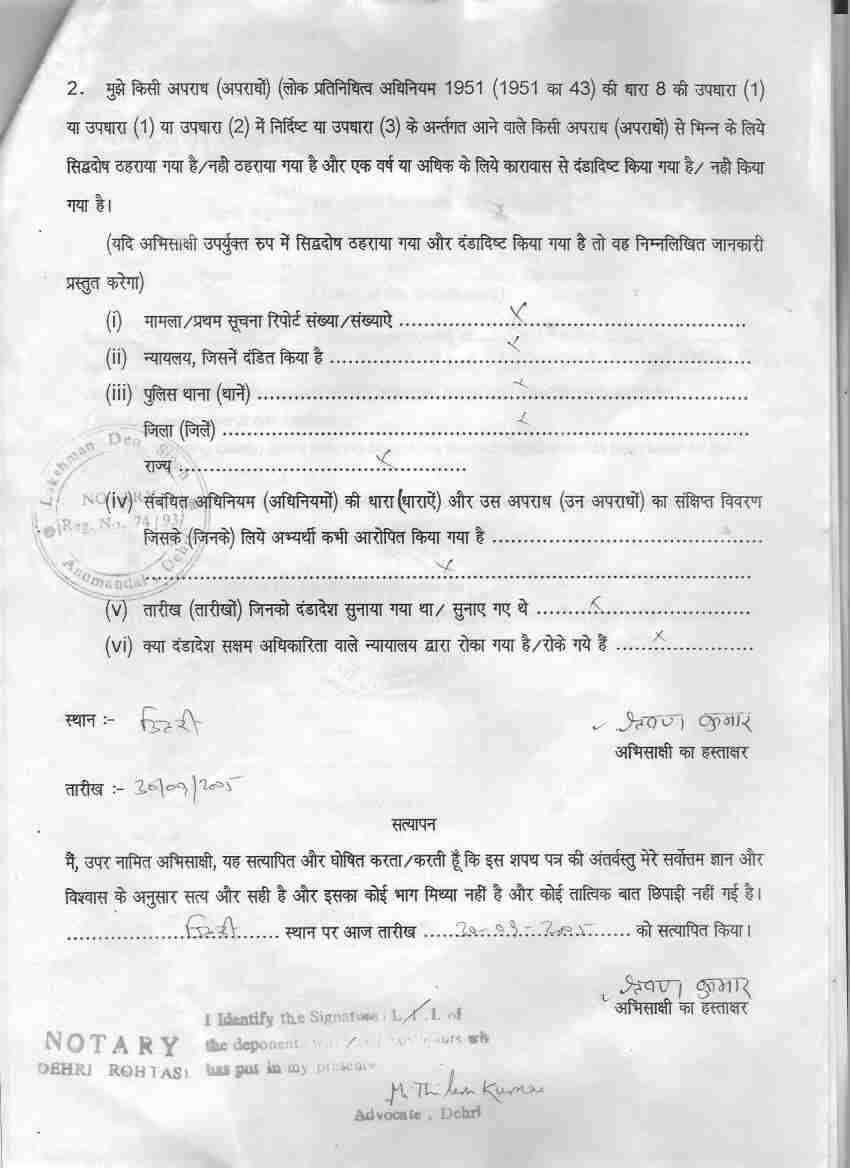 2. मुझे किसी अपराध (अपराधों) (लोक प्रतिनिधित्व अधिनियम 1951 (1951 का 43) की धारा 8 की उपधारा (1)
या उपधारा (1) या उपधारा (2) में निर्दिष्ट या उपधारा (3) के अर्न्तगत आने वाले किसी अपराध (अपराधों) से भिन्न के लिये
सिद्वदोष ठहराया गया है/नही ठहराया गया है और एक वर्ष या अधिक के लिये कारावास से दंडादिष्ट किया गया है/ नही किया
गया है।
(यदि अभिसाक्षी उपर्युक्त रुप में सिद्वदोष ठहराया गया और दंडादिष्ट किया गया है तो वह निम्नलिखित जानकारी
प्रस्तुत करेगा)
(i) मामला/प्रथम सूचना रिपोर्ट संख्या/संख्याऐ ........ X ........
(ii) न्यायलय, जिसनें दंडित किया है ........ X ........
(iii) पुलिस थाना (थानें) ........ X ........
जिला (जिलें) ........ X ........
राज्य ........ X ........
(iv) संबंधित अधिनियम (अधिनियमों) की धारा (धाराऐं) और उस अपराध (उन अपराधों) का संक्षिप्त विवरण
जिसके (जिनके) लिये अभ्यर्थी कभी आरोपित किया गया है ........
........ X ........
(v) तारीख (तारीखों) जिनको दंडादेश सुनाया गया था/ सुनाए गए थे ........ X ........
(vi) क्या दंडादेश सक्षम अधिकारिता वाले न्यायालय द्वारा रोका गया है/रोके गये हैं ........ X ........
Lakshman Deo Singh
NOTARY
Reg. No. 74/93
Anumandal Dehri
स्थान :- डिहरी
श्रवण कुमार
अभिसाक्षी का हस्ताक्षर
तारीख :- 30/09/2005
सत्यापन
मैं, उपर नामित अभिसाक्षी, यह सत्यापित और घोषित करता/करती हूँ कि इस शपथ पत्र की अंतर्वस्तु मेरे सर्वोत्तम ज्ञान और
विश्वास के अनुसार सत्य और सही है और इसका कोई भाग मिथ्या नहीं है और कोई तात्विक बात छिपाई नहीं गई है।
........ डिहरी ........ स्थान पर आज तारीख ........ 2005 ........ को सत्यापित किया।
श्रवण कुमार
अभिसाक्षी का हस्ताक्षर
I Identify the Signature L.T.I. of
NOTARY the deponent
DEHRI ROHTAS has put in my presence
Kumar
Advocate, Dehri